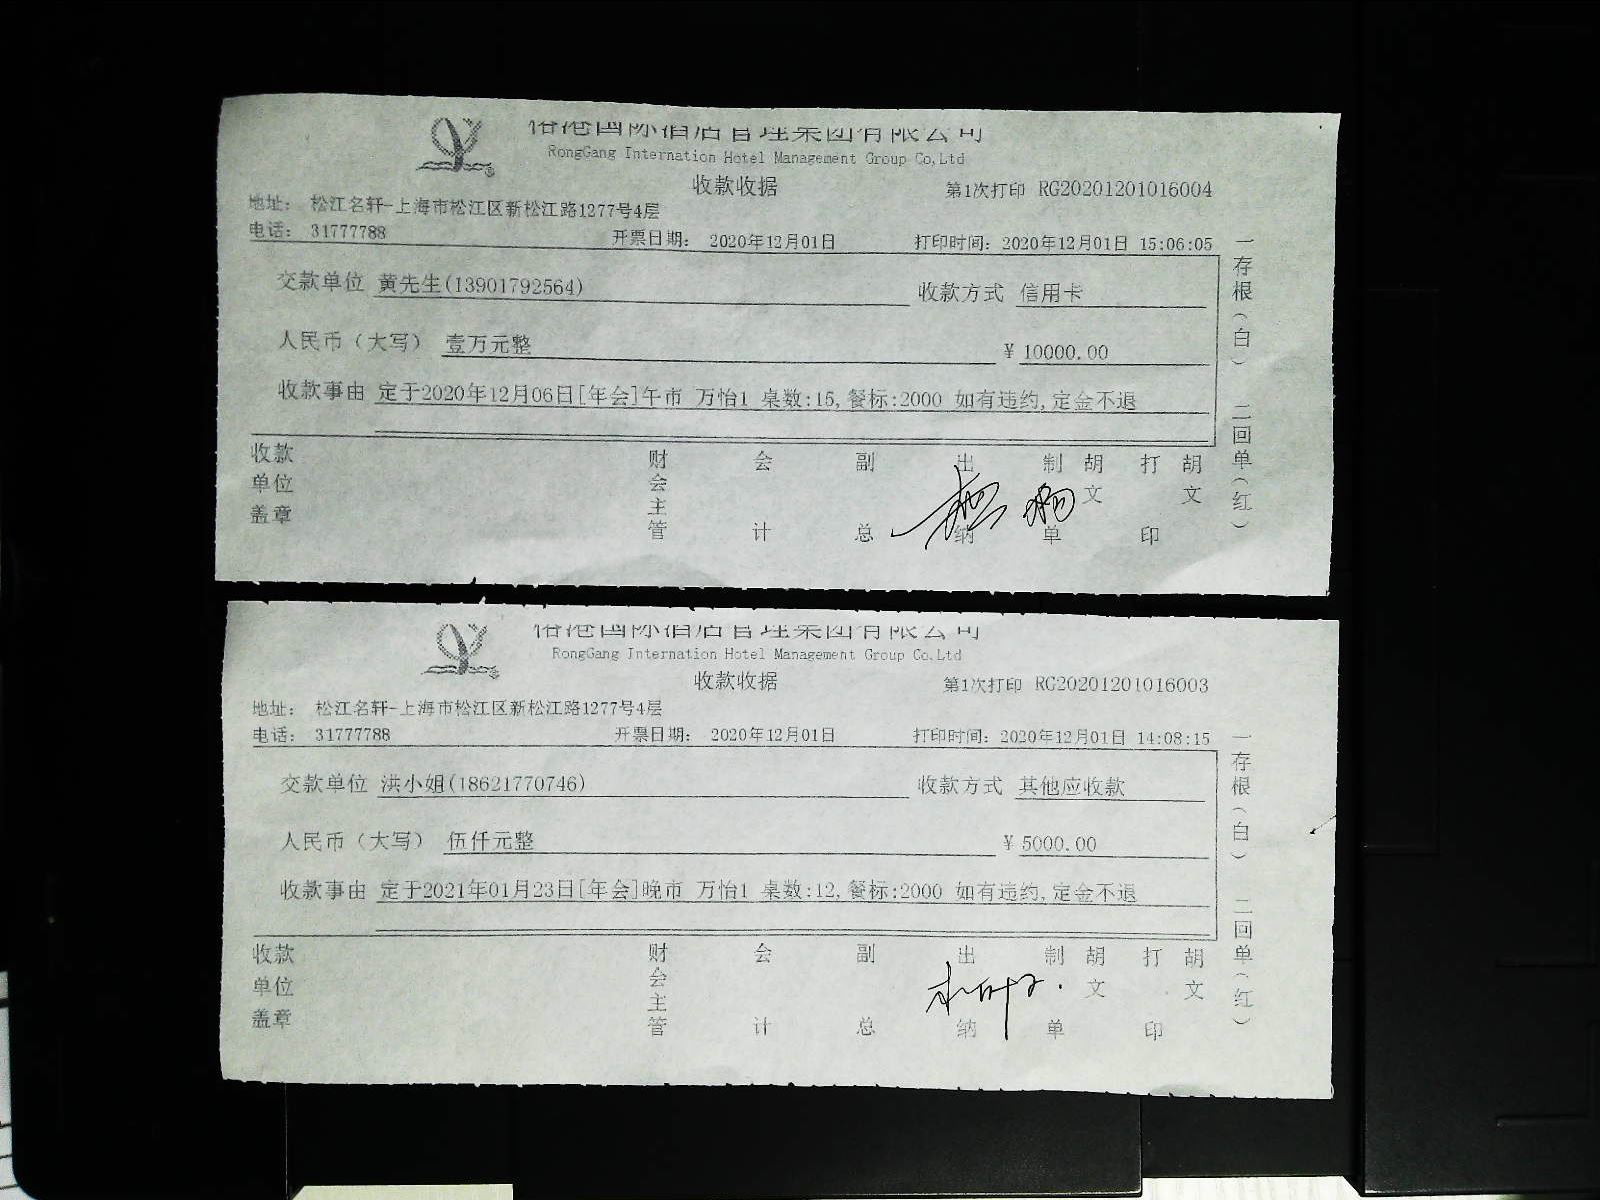 港国际酒店管理集团有限公司
RongGang Internation Hotel Management Group Co,Ltd
收款收据 第1次打印 RG20201201016004
地址： 松江名轩-上海市松江区新松江路1277号4层
电话： 31777788 开票日期： 2020年12月01日 打印时间：2020年12月01日 15:06:05
交款单位 黄先生(13901792564) 收款方式 信用卡
人民币（大写） 壹万元整 ¥ 10000.00
收款事由 定于2020年12月06日[年会]午市 万怡1 桌数:15,餐标:2000 如有违约,定金不退
收款单位盖章 财会主管 会计 副总 出纳 制单 胡文 打印 胡文
一存根（白） 二回单（红）
港国际酒店管理集团有限公司
RongGang Internation Hotel Management Group Co.Ltd
收款收据 第1次打印 RG20201201016003
地址： 松江名轩-上海市松江区新松江路1277号4层
电话： 31777788 开票日期： 2020年12月01日 打印时间：2020年12月01日 14:08:15
交款单位 洪小姐(18621770746) 收款方式 其他应收款
人民币（大写） 伍仟元整 ¥ 5000.00
收款事由 定于2021年01月23日[年会]晚市 万怡1 桌数:12,餐标:2000 如有违约,定金不退
收款单位盖章 财会主管 会计 副总 出纳 制单 胡文 打印 胡文
一存根（白） 二回单（红）